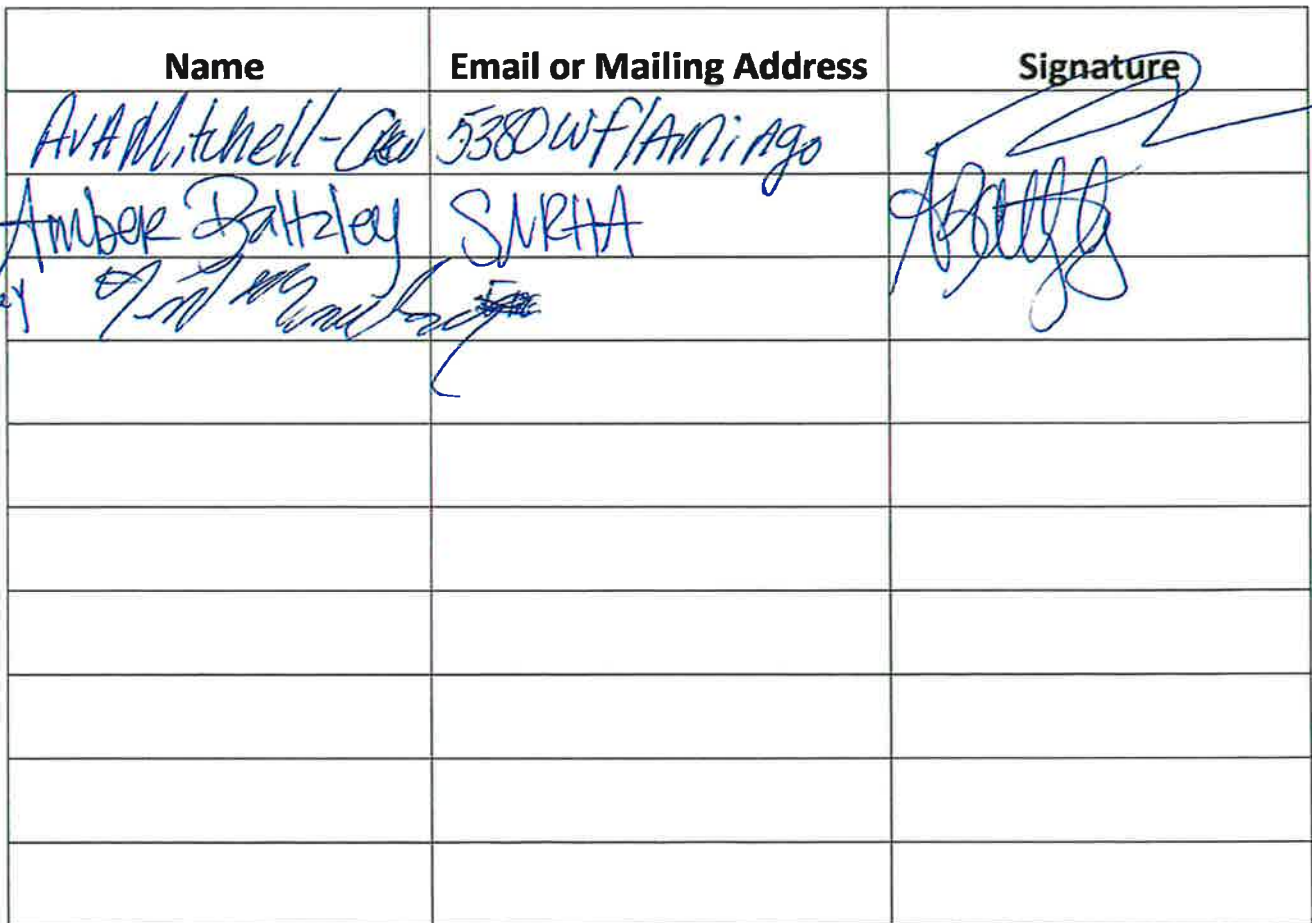 Name Email or Mailing Address Signature
AVA Mitchell-Crew 5380 W FlAmiNgo
Amber Baltzley SNRHA